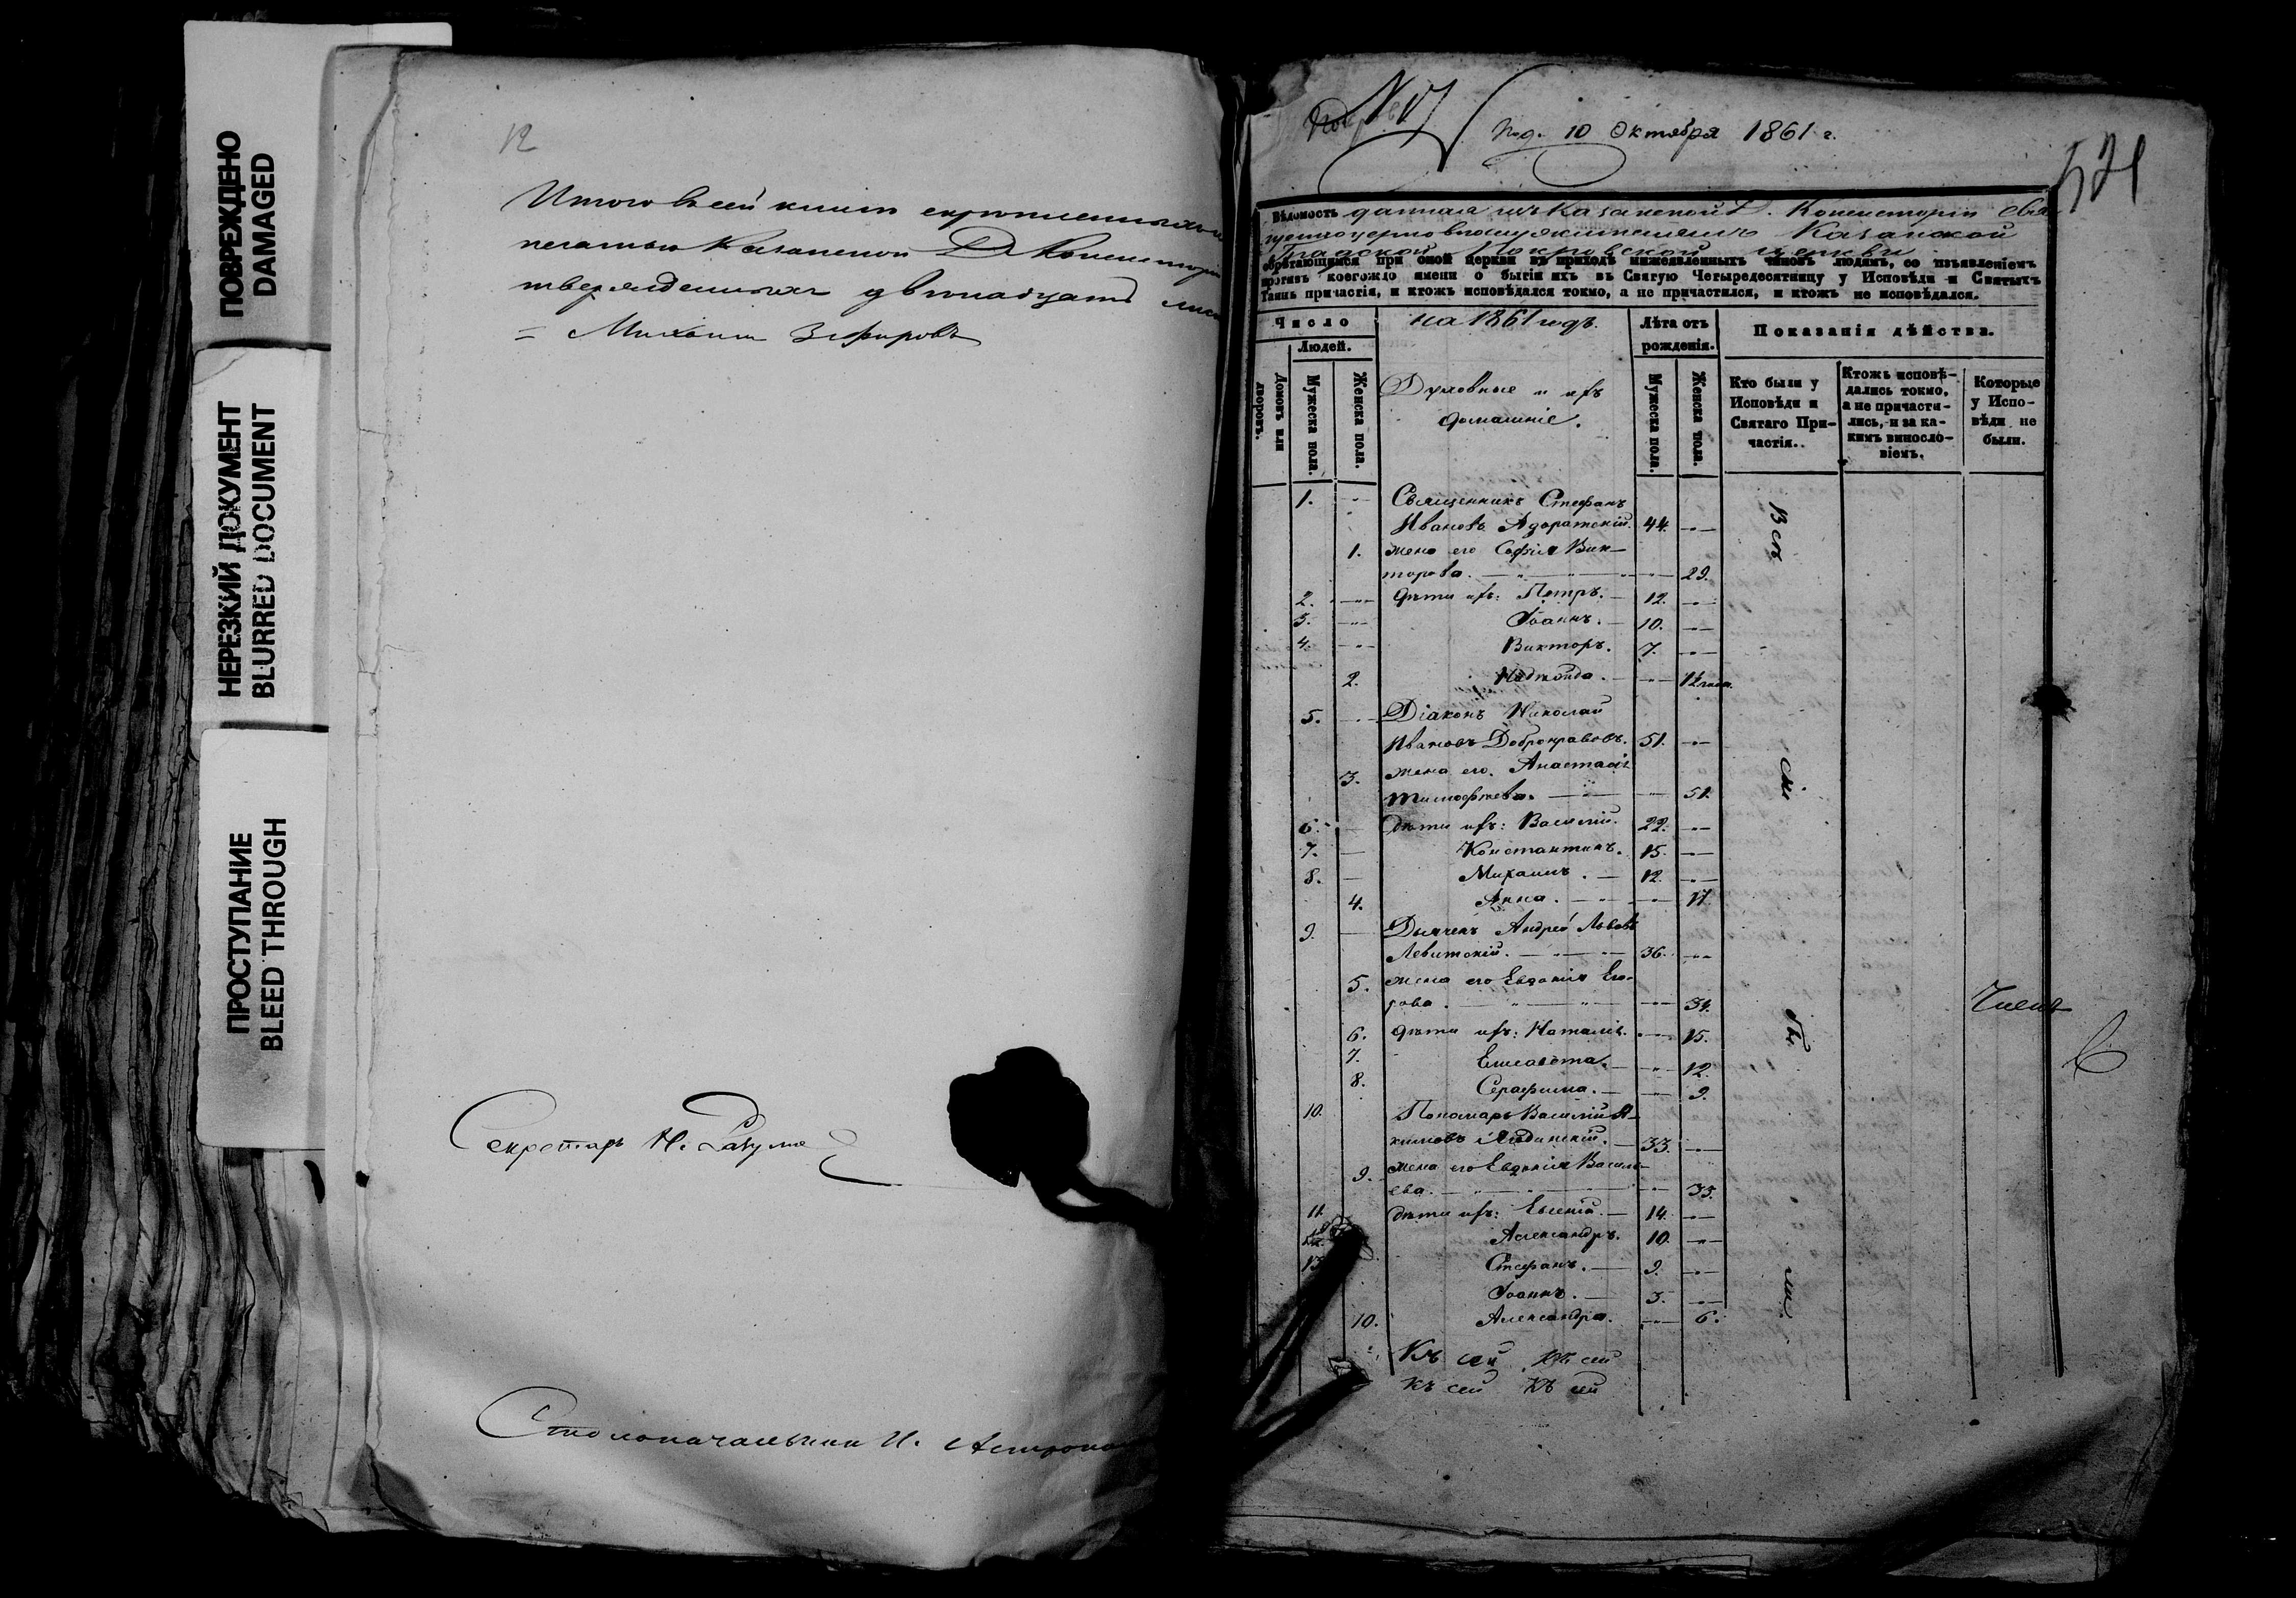 ПОВРЕЖДЕНО
DAMAGED
НЕРЕЗКИЙ ДОКУМЕНТ
BLURRED DOCUMENT
ПРОСТУПАНИЕ
BLEED THROUGH
12
Итого въ сей книгѣ скрѣпленныхъ и
печатью Казанской Д. Консисторіи
твержденныхъ двѣнадцать лис
= Михаилъ Зефировъ
Секретарь Н.
Столоначальникъ И.
№ 17
Под. 10 Октября 1861 г.
521
Вѣдомость данная изъ Казанской Д. Консисторіи Свя-
щенноцерковнослужителямъ Казанской
Градской Покровской церкви
обрѣтающимся при оной церкви въ приходѣ нижеявленныхъ чиновъ людямъ, со изъявленіемъ
противъ коегождо имени о бытіи ихъ въ Святую Четыредесятницу у Исповѣди и Святыхъ
Таинъ причастія, и ктожъ исповѣдался токмо, а не причастился, и ктожъ не исповѣдался.
Число
на 1861 годъ.
Лѣта отъ рожденія.
Показанія дѣйства.
Людей.
Домовъ или дворовъ.
Мужеска пола.
Женска пола.
Духовные и ихъ
домашніе.
Мужеска пола.
Женска пола.
Кто были у Исповѣди и Святаго Причастія.
Ктожъ исповѣ-
дались токмо,
а не причасти-
лись, и за ка-
кимъ виносло-
віемъ.
Которые
у Испо-
вѣди не
были.
1. Священникъ Стефанъ
Ивановъ Адоратскій. 44.
1. жена его Софія Вик-
торова. 29.
2. дѣти ихъ: Петръ. 12.
3. Іоаннъ. 10.
4. Викторъ. 7.
2. Надежда. 12
5. Діаконъ Николай
Ивановъ Добронравовъ. 51.
3. жена его Анастасія
Тимофеева. 51.
6. дѣти ихъ: Василій. 22.
7. Константинъ. 15.
8. Михаилъ. 12.
4. Анна. 17.
9. Дьячекъ Андрей Львовъ
Левитскій. 36.
5. жена его Евдокія Его-
рова. 34.
6. дѣти ихъ: Наталія. 15.
7. Елисавета. 12.
8. Серафима. 9.
10. Пономарь Василій А-
кимовъ 33.
9. жена его Евдокія Василь-
ева. 33.
11. дѣти ихъ: Евгеній. 14.
12. Александръ. 10.
13 Стефанъ. 9.
Іоаннъ. 3.
10. Александра. 6.
Къ сей къ сей
Къ сей Къ сей
Всѣ
бы
ли.